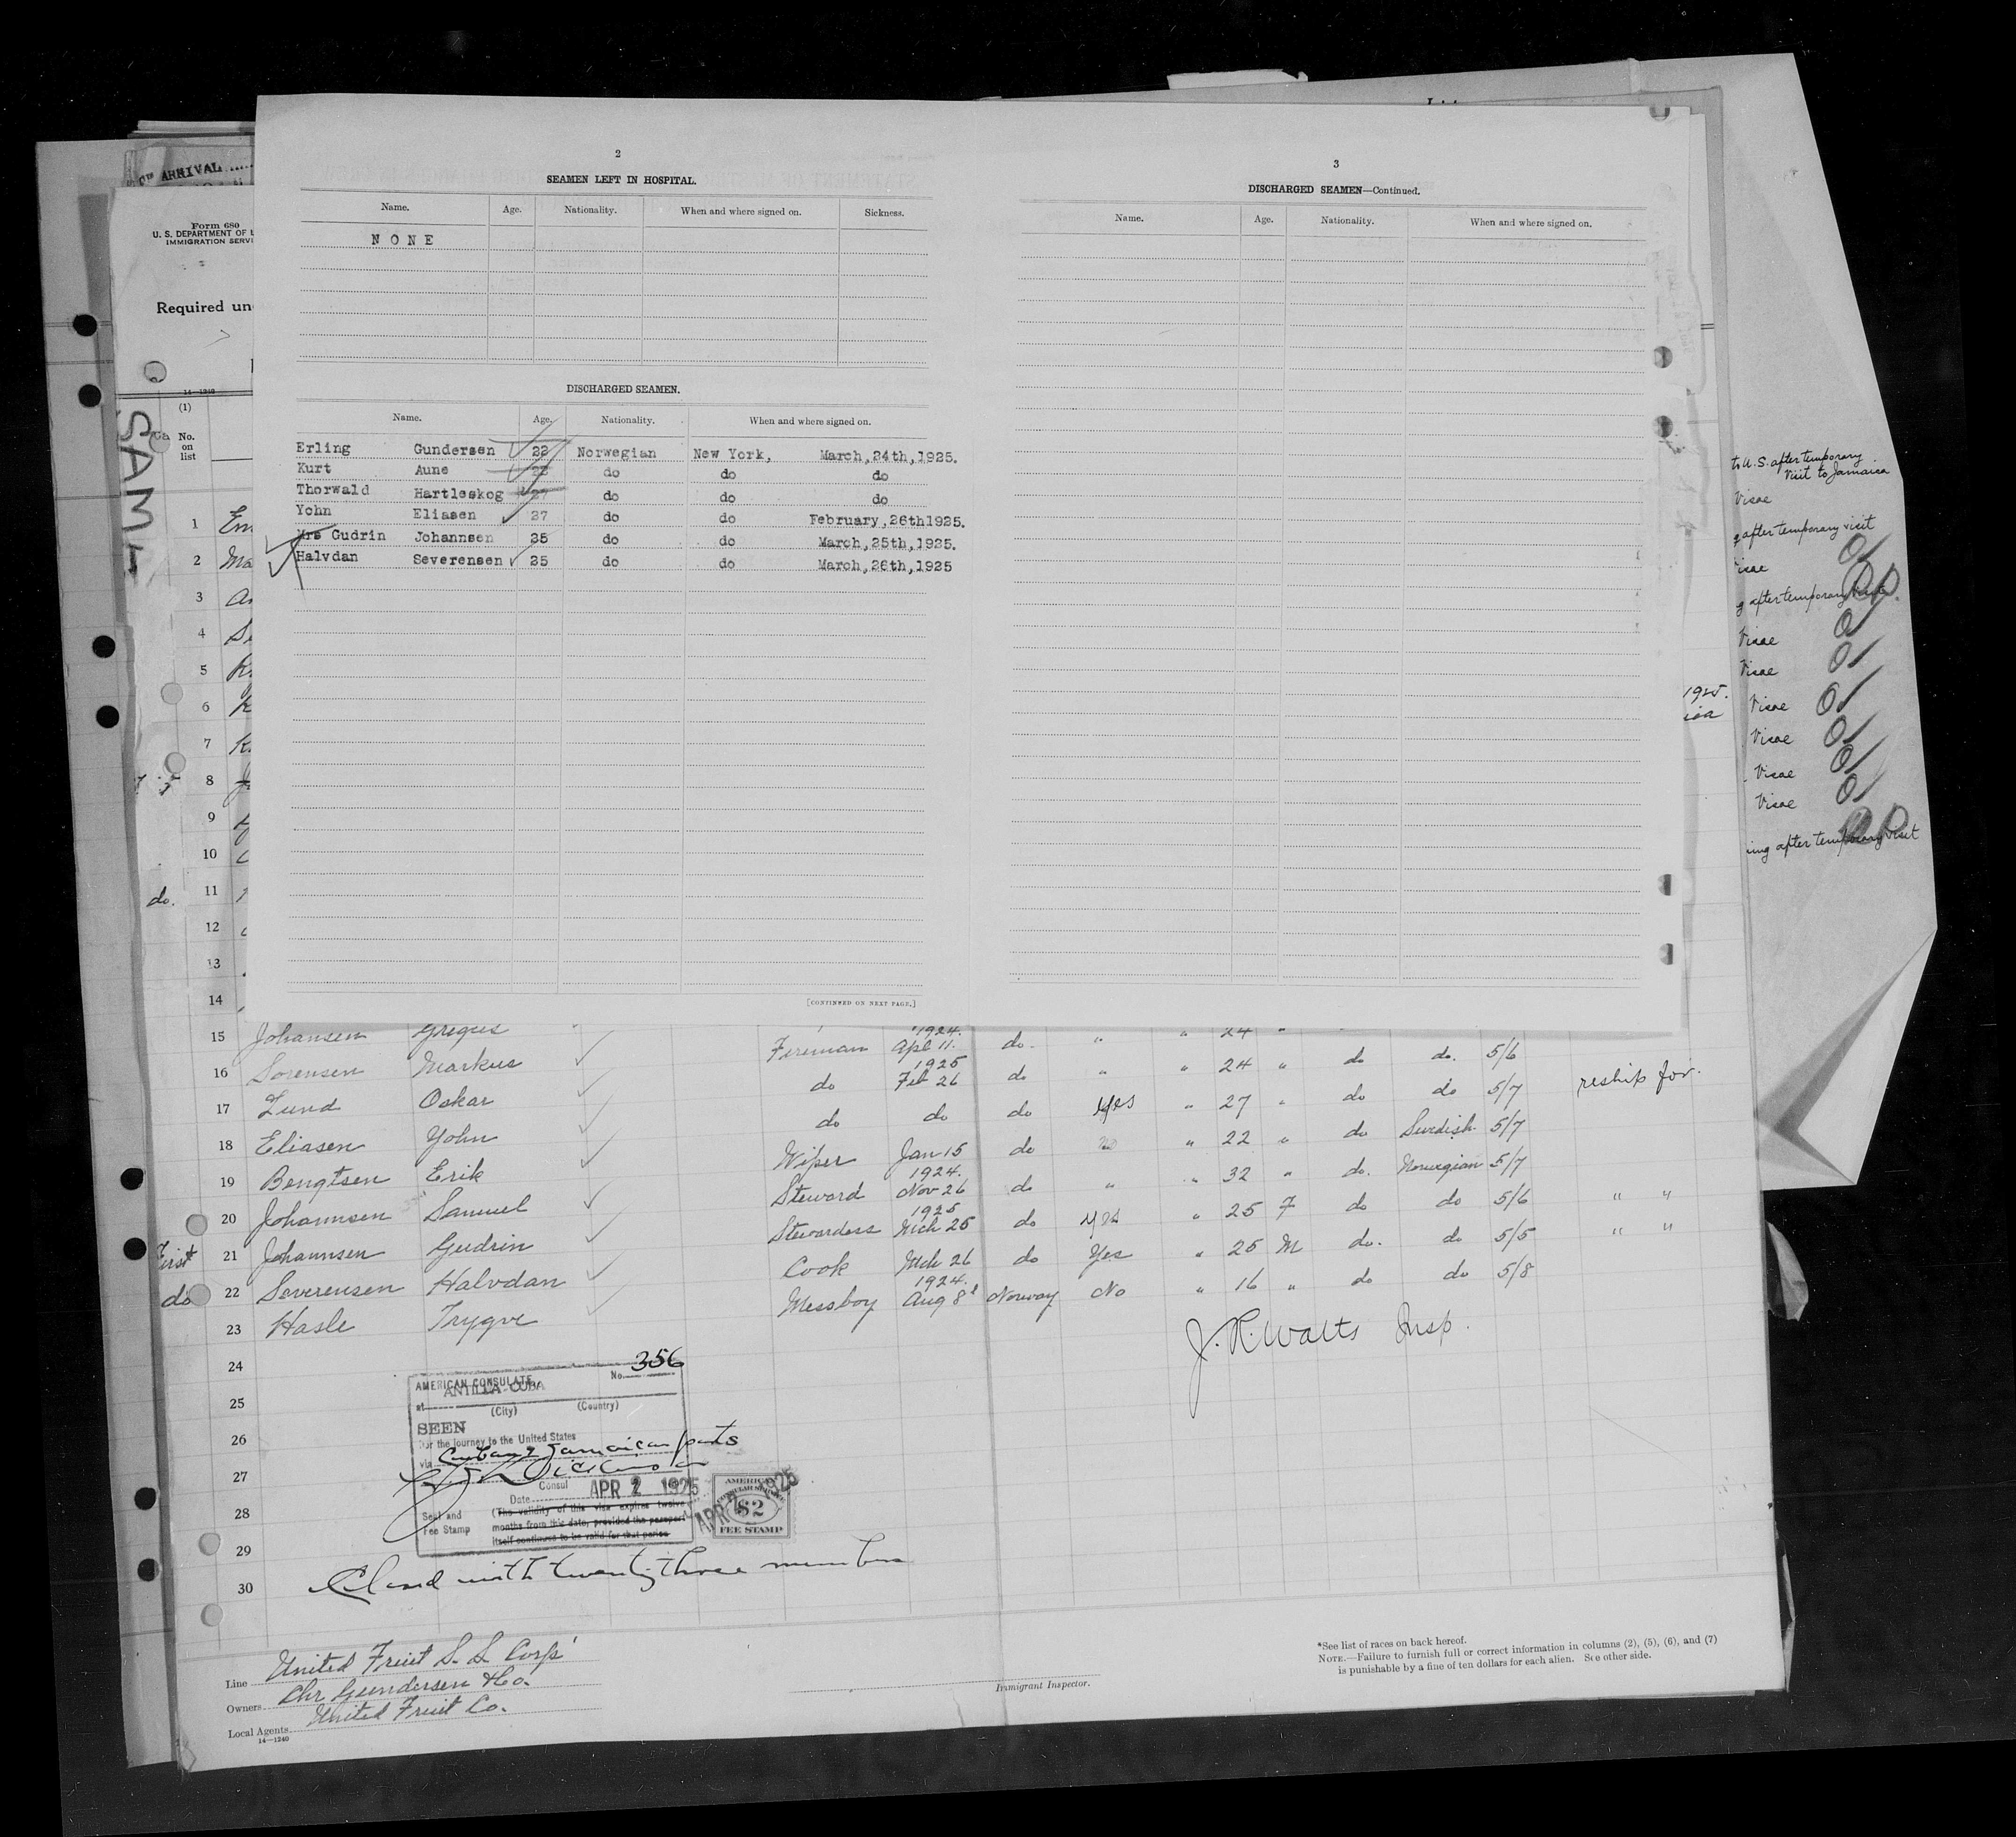 CH ARRIVAL
Form 680
U. S. DEPARTMENT OF
IMMIGRATION SERVI
Required un
14—1240
(1)
No.
on
list
SAML
2
SEAMEN LEFT IN HOSPITAL.
Name. Age. Nationality. When and where signed on. Sickness.
N O N E
DISCHARGED SEAMEN.
Name. Age. Nationality. When and where signed on.
Erling Gundersen 22 Norwegian New York, March,24th,1925.
Kurt Aune do do do
Thorwald Hartleskog do do do
Yohn Eliasen 27 do do February,26th1925.
Mrs Gudrin Johannsen 25 do do March,25th,1925.
Halvdan Severensen 25 do do March,26th,1925
[CONTINUED ON NEXT PAGE.]
3
DISCHARGED SEAMEN—Continued.
Name. Age. Nationality. When and where signed on.
to U.S. after temporary
visit to Jamaica
Visae
g after temporary visit
Visae
g after temporary visit
Visae
Visae
Visae
Visae
Visae
Visae
ing after temporary visit
1925.
1 Em
2 Ma
3
4
5
6
7
8
9
10
do. 11
12
13
14
15 Johansen Gregus 24
16 Sorensen Markus Fireman 1924. Apl 11. do. " " 24 " do do. 5/6
17 Lund Oskar do 1925 Feb 26 do " " 24 " do do. 5/7
18 Eliasen Yohn do do do Yes " 27 " do do 5/7 reship for.
19 Bengtsen Erik Wiper Jan 15 do " 22 " do Swedish 5/7
20 Johannsen Samuel Steward 1924. Nov 26 do " " 32 " do. Norwegian 5/7
First 21 Johannsen Gudrin Stewardess 1925 Mch 25 do yes " 25 F do do 5/6 " "
do 22 Severensen Halvdan Cook Mch 26 do Yes " 25 M do. do 5/5 " "
23 Hasle Trygve Messboy 1924. Aug 8 Norway No " 16 " do do 5/8
J. R. Watts Insp.
24
25
26
27
28
29
30
AMERICAN CONSULATE No. 356
at ANTILLA CUBA
(City) (Country)
SEEN
For the journey to the United States
via Cuban & Jamaican ports
Consul
Date APR 2 1925
Seal and
Fee Stamp
(The validity of this visa expires twelve
months from this date, provided the passport
itself continues to be valid for that period
APR 2 1925
AMERICAN
CONSULAR SERVICE
$2
FEE STAMP
Closed with twenty-three members
Line United Fruit S. S. Corp'
Owners Chr Gundersen & Co.
Local Agents United Fruit Co.
14—1240
Immigrant Inspector.
*See list of races on back hereof.
NOTE.—Failure to furnish full or correct information in columns (2), (5), (6), and (7)
is punishable by a fine of ten dollars for each alien. See other side.